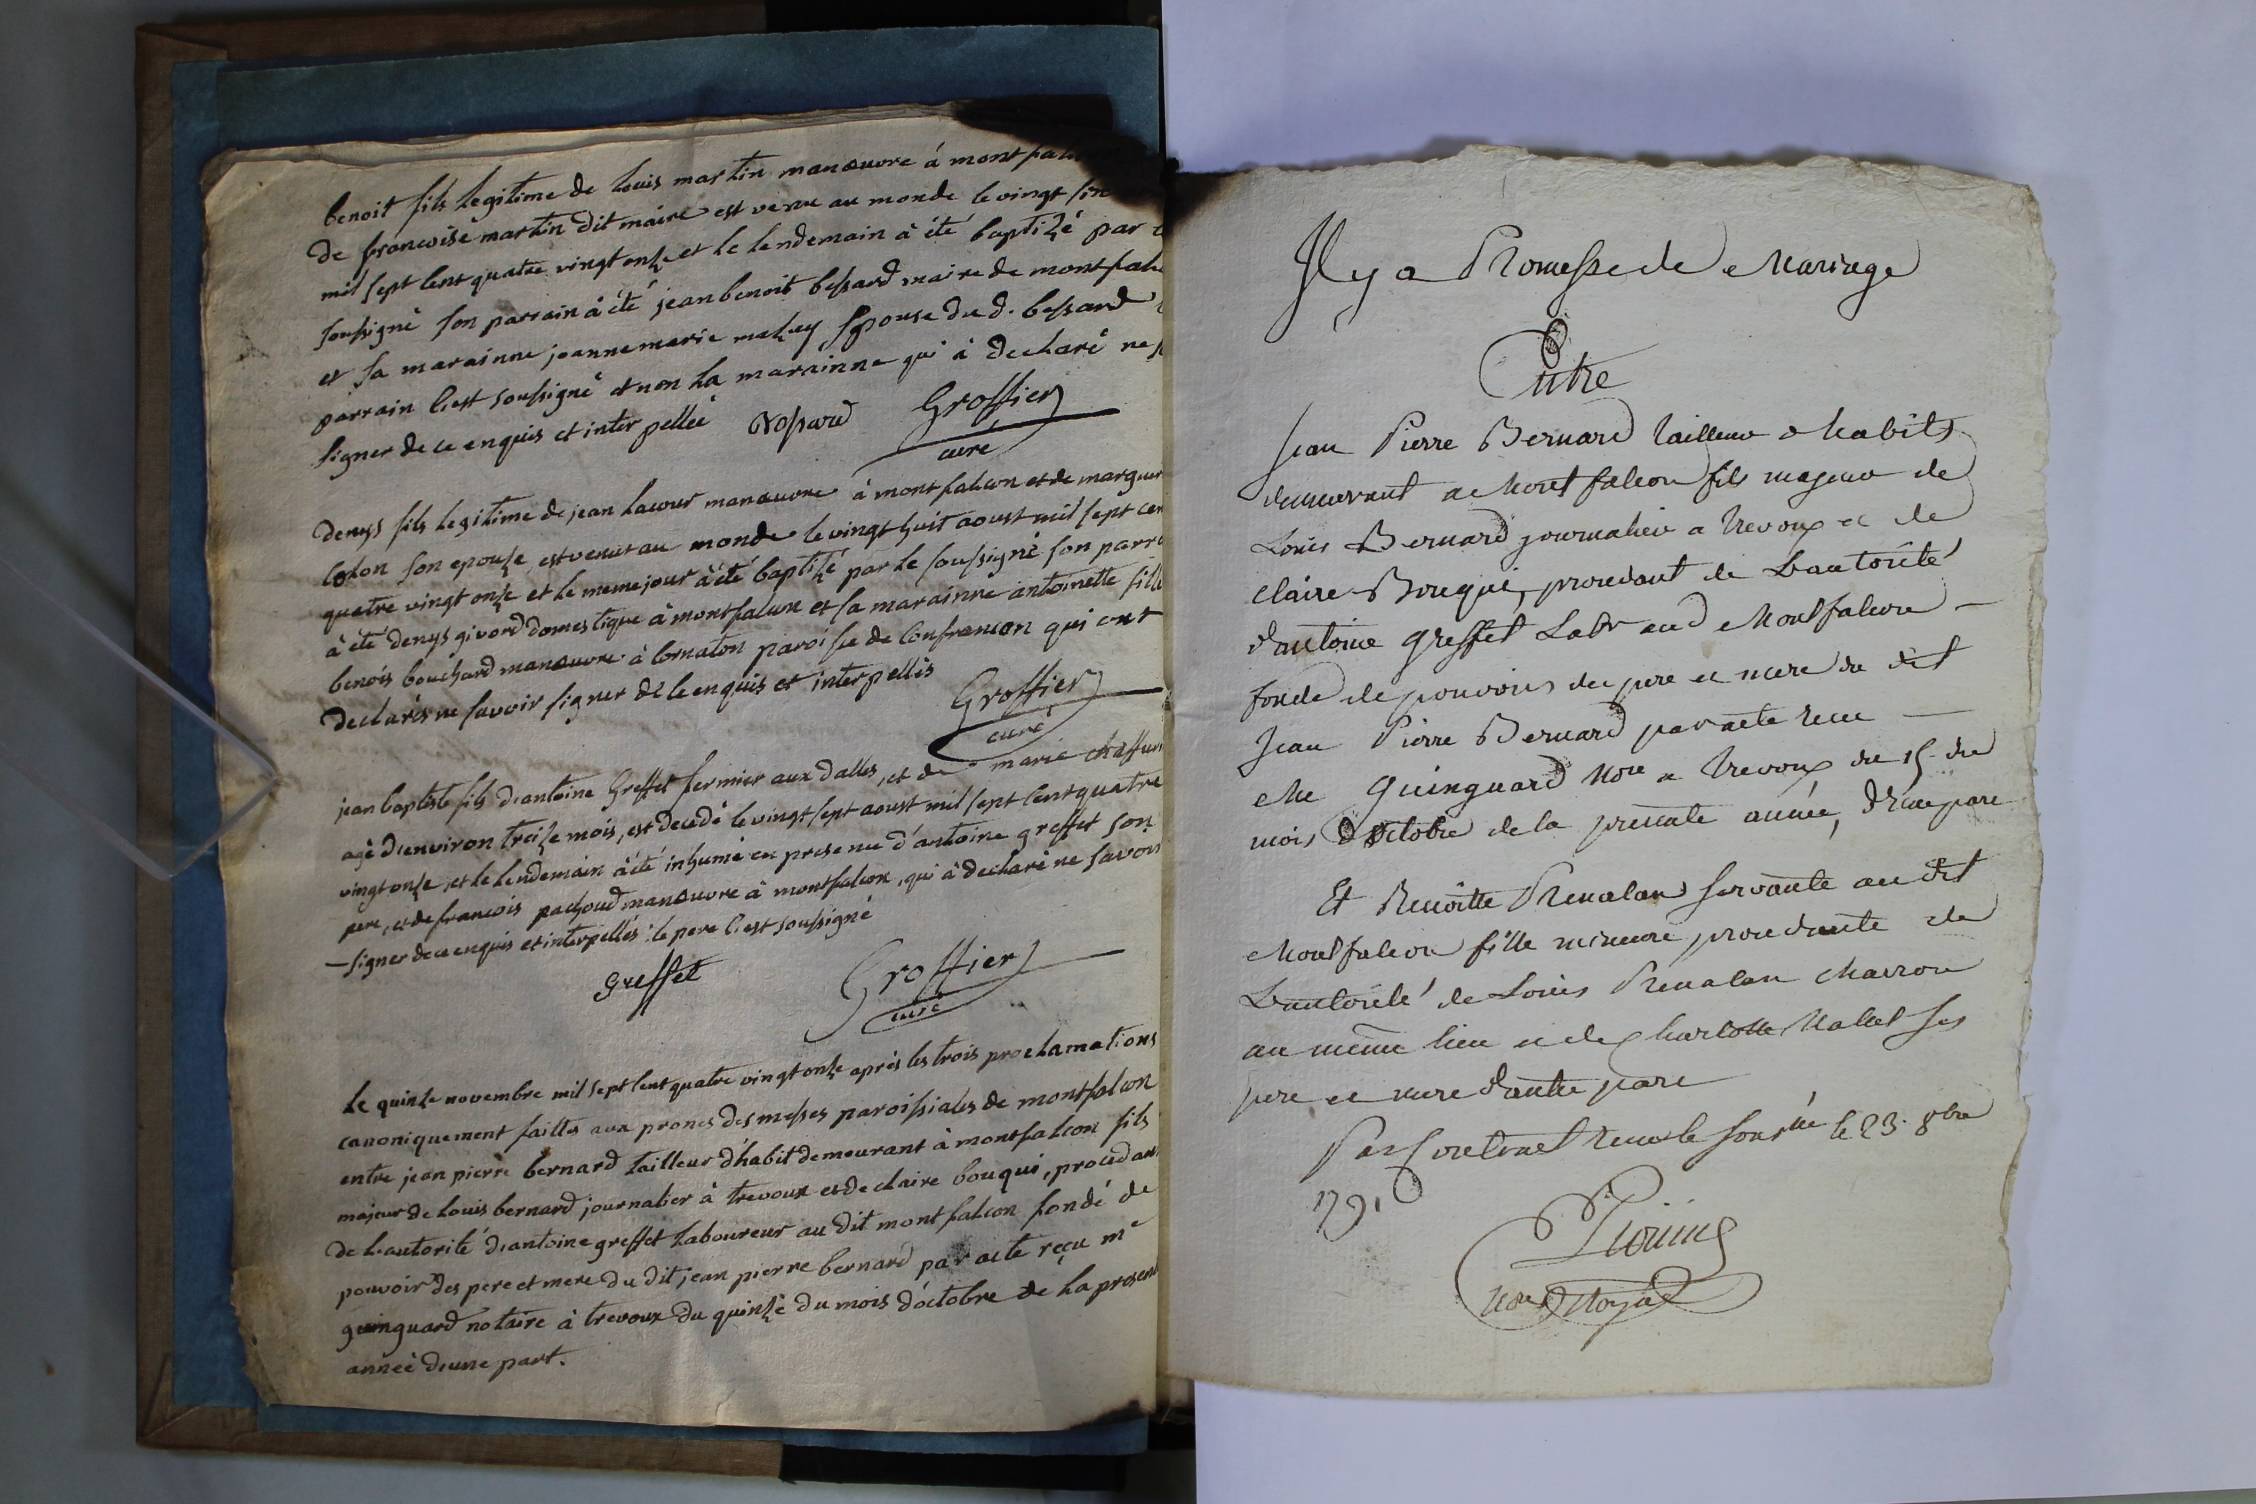 benoit fils legitime de louis martin manœuvre á montfal
de francoise martin dit maire est venu au monde le vingt sin
mil sept cent quatre vingt onze et le lendemain à été baptizé par
soussigné son parrain à été jean benoit bessard maire de montfal
et sa marainne jeanne marie épouse du d. bessard
parrain c'est soussigné et non la marainne qui à declaré ne s
signer de ce enquis et interpellée Groffier
curé
denys fils legitime de jean lacour manœuvre à montfalcon et de marguer
colon son epouze est venut au monde le vingt huit aoust mil sept cen
quatre vingt onze et le meme jour à été baptizé par le soussigné son parr
à été denys givord domestique à montfalcon et sa marainne antoinette fill
benois bouchard manœuvre à cornaton paroisse de confrancon qui ont
declarés ne savoir signer de ce enquis et interpellés Groffier
curé
jean baptiste fils d'antoine Greffet fermier aux dalles, et de marie chaffur
agé d'environ treize mois, est decedé le vingt sept aoust mil sept cent quatre
vingt onze, et le lendemain à été inhumé en presence d'antoine greffet son
pere, et de francois pachoud manœuvre à montfalcon, qui à declaré ne savoir
signer de ce enquis et interpellés : le pere c'est soussigné
Greffet Groffier
curé
le quinze novembre mil sept cent quatre vingt onze après les trois proclamations
canoniquement faittes aux prones des messes paroissiales de montfalcon
entre jean pierre bernard tailleur d'habit demeurant à montfalcon fils
majeur de louis bernard journalier à trevoux et de claire bouqui, procedan
de l'autorité d'antoine greffet laboureur au dit montfalcon fondé de
pouvoir des pere et mere du dit jean pierre bernard par acte reçu me
guinguard notaire à trevoux du quinze du mois d'octobre de la presen
année d'une part.
Il y a Promesse de Mariage
Entre
Jean Pierre Bernard tailleur d'habits
demeurant a Montfalcon fils majeur de
Louis Bernard journalier a Trevoux et de
Claire Bouqui, procedant de L'autorité
d'antoine Greffet Labr aud Montfalcon
fondé de pouvoirs des pere et mere du dit
Jean Pierre Bernard par acte recu
Me Guinguard Nore a Trevoux du 15 du
mois d'octobre de la presente année, d'une part
Et Benoitte Prenalan servante au dit
Montfalcon fille mineure, procedante de
L'autorité de Louis Prenalan charron
au même lieu et de Charlotte ses
pere et mere d'autre part
Par Contract recu le soussné le 23. 8bre
1791
Nore Royal